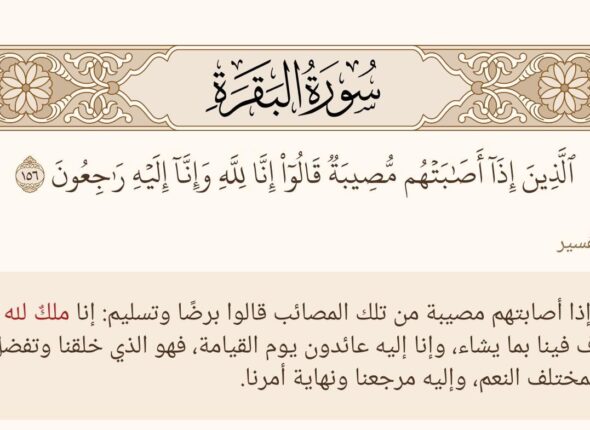 سُورَةُ البَقَرَةِ
ٱلَّذِينَ إِذَآ أَصَٰبَتۡهُم مُّصِيبَةٞ قَالُوٓاْ إِنَّا لِلَّهِ وَإِنَّآ إِلَيۡهِ رَٰجِعُونَ ١٥٦
إذا أصابتهم مصيبة من تلك المصائب قالوا برضًا وتسليم: إنا ملكٌ لله
فينا بما يشاء، وإنا إليه عائدون يوم القيامة، فهو الذي خلقنا وتفضل
مختلف النعم، وإليه مرجعنا ونهاية أمرنا.